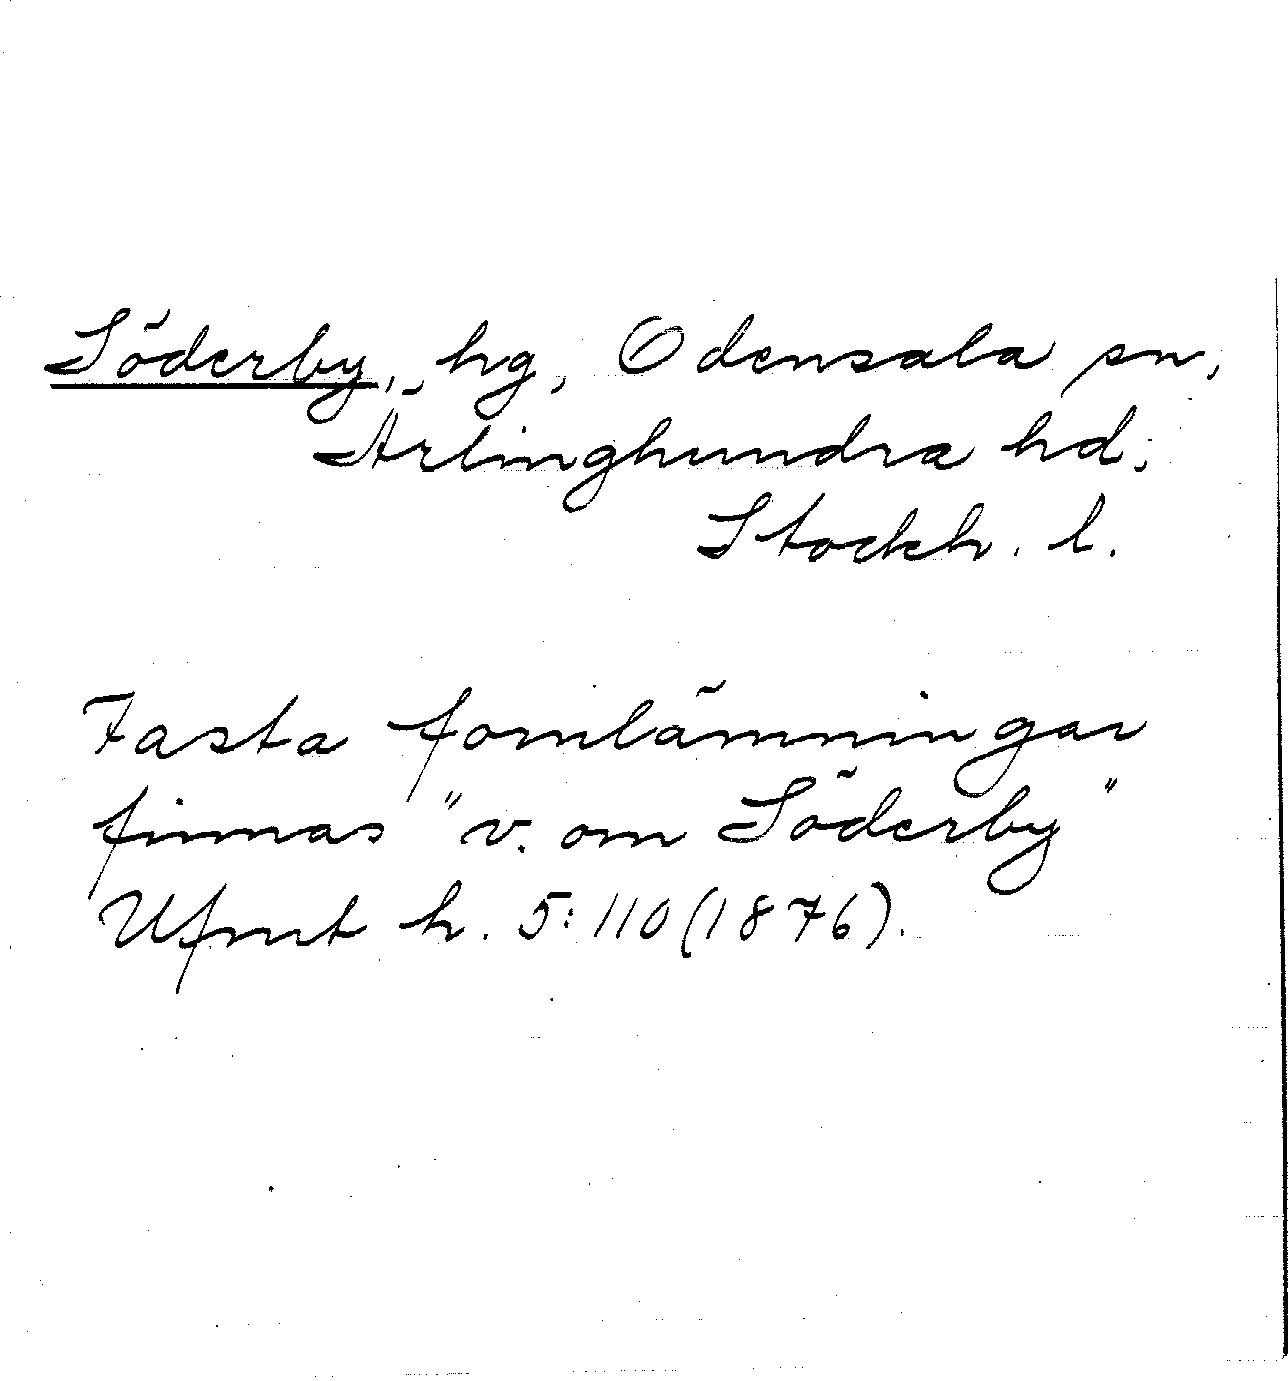 Söderby, hg, Odensala sn,
Ärlinghundra hd,
Stockh. l.
Fasta fornlämningar
finnas "v. om Söderby"
Ufmt h. 5:110 (1876).